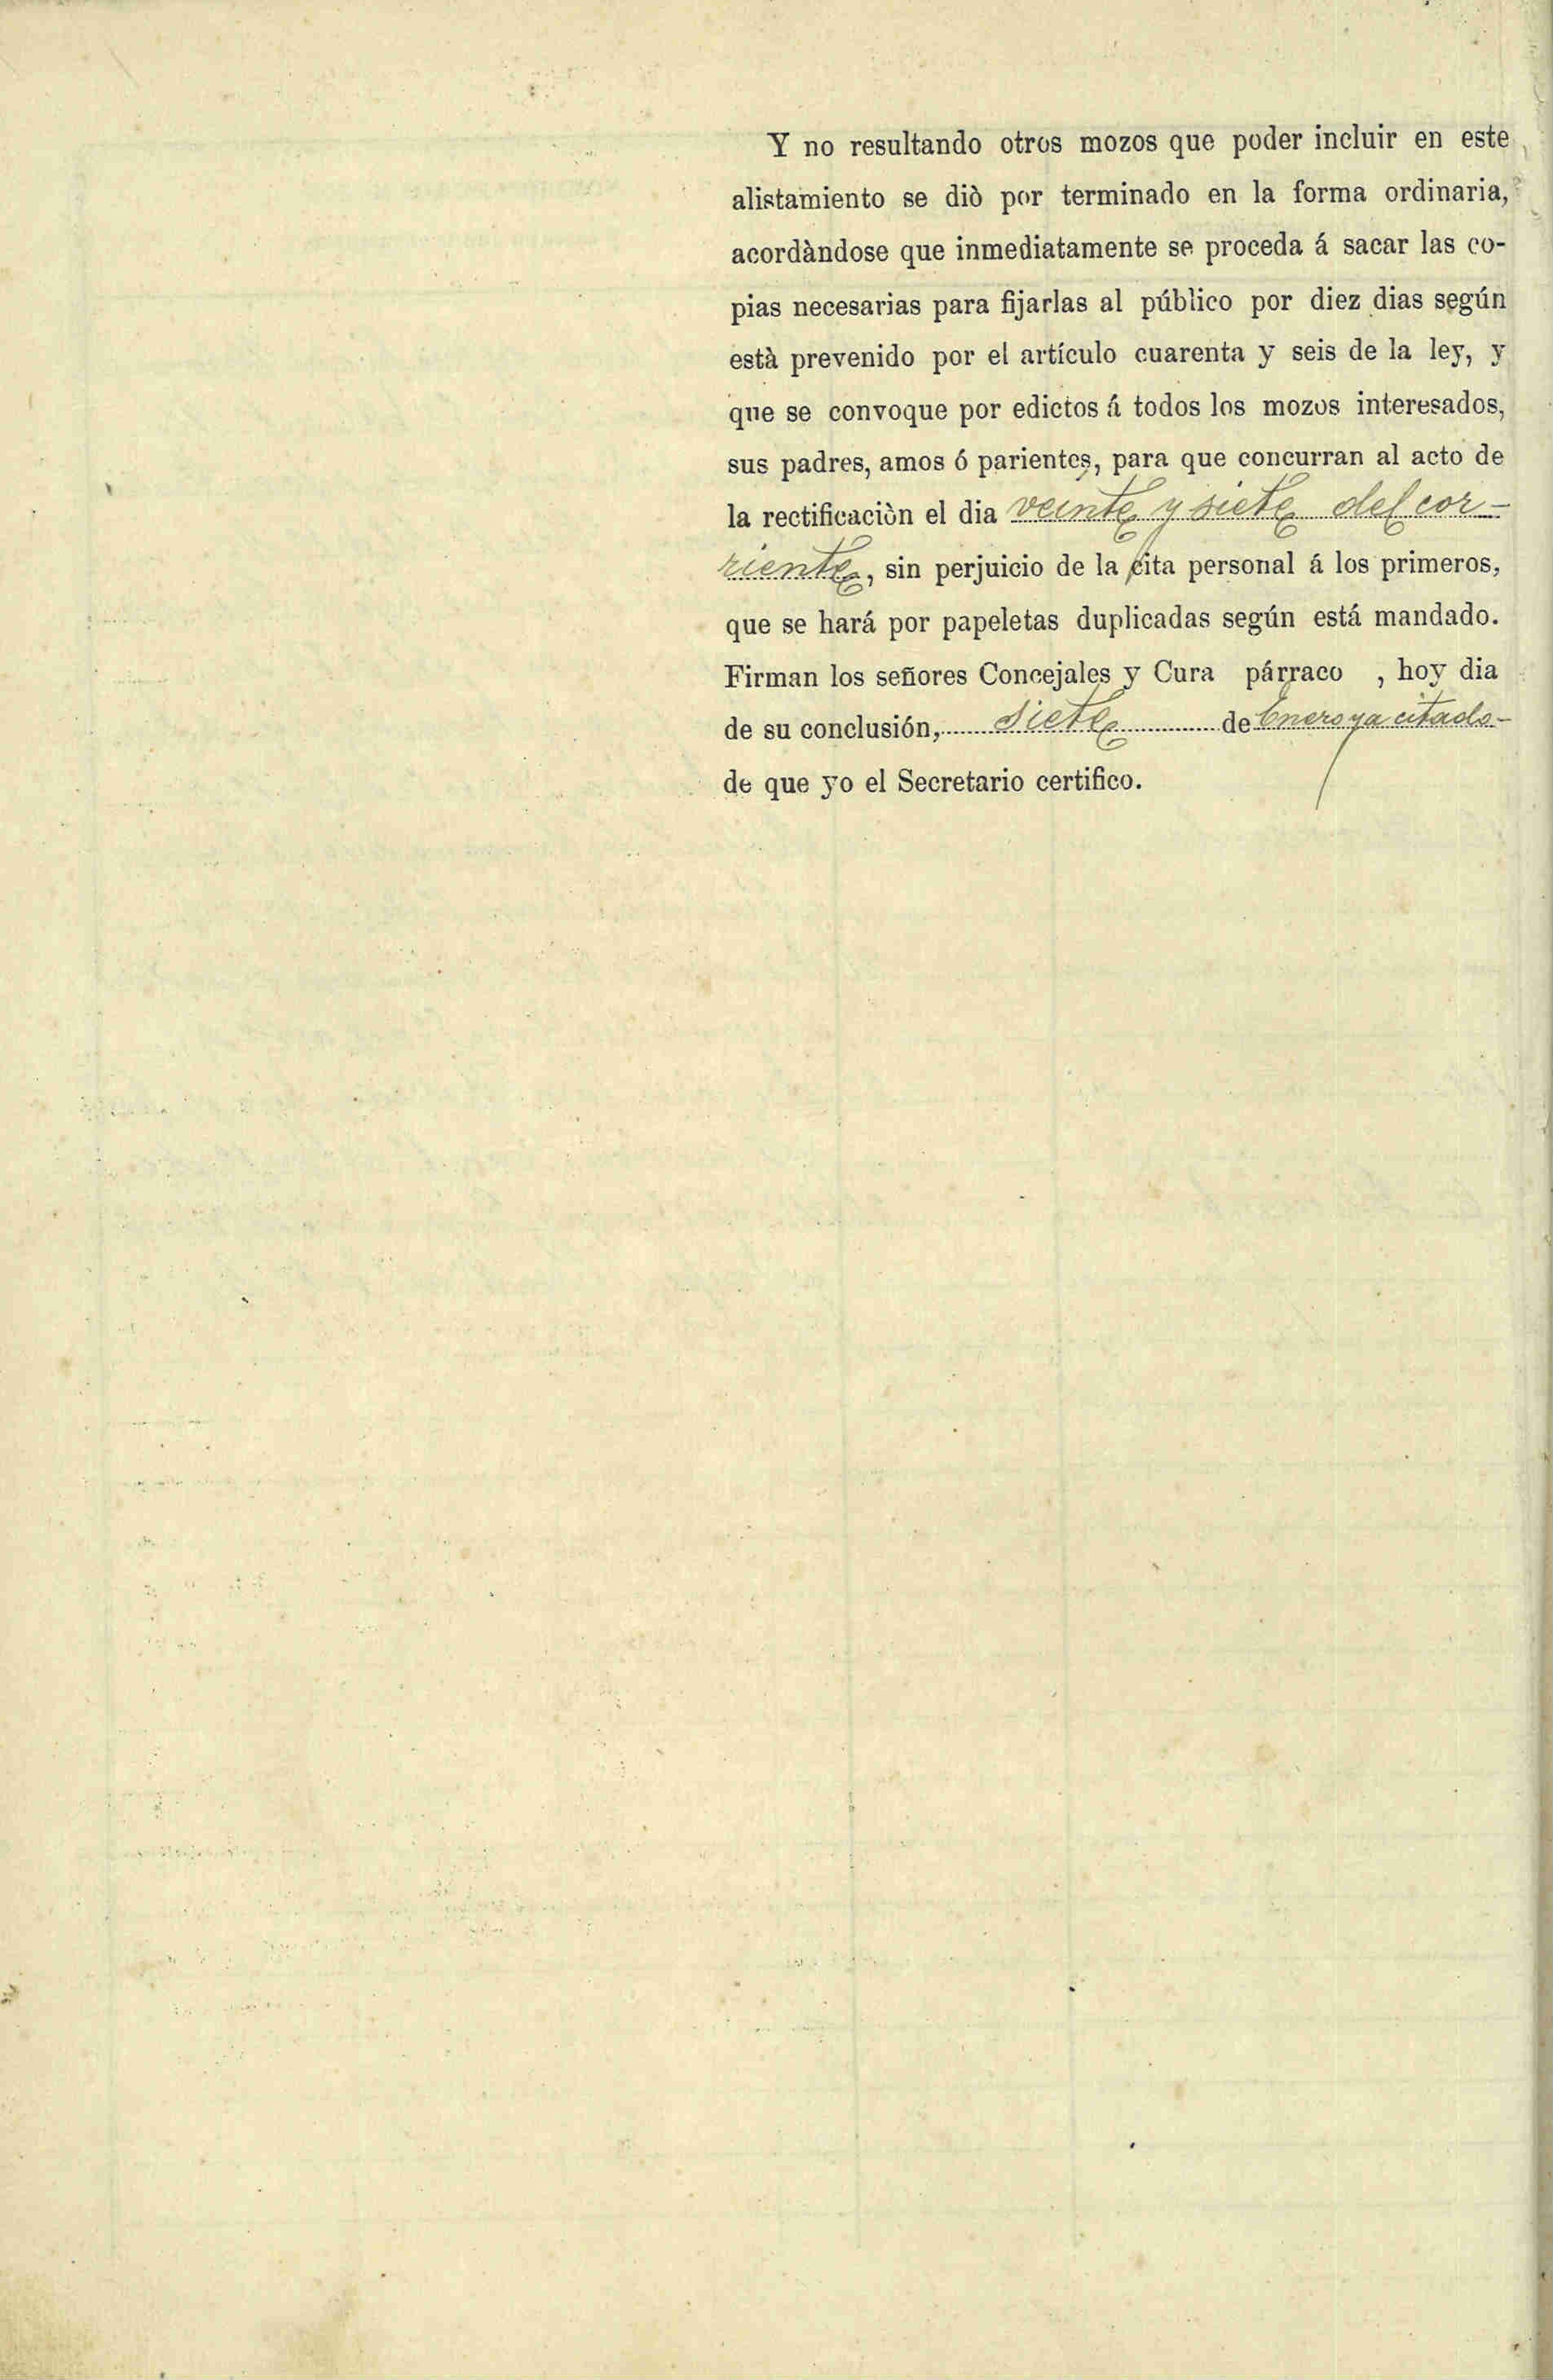 Y no resultando otros mozos que poder incluir en este
alistamiento se diò por terminado en la forma ordinaria,
acordàndose que inmediatamente se proceda á sacar las co-
pias necesarias para fijarlas al público por diez dias según
està prevenido por el artículo cuarenta y seis de la ley, y
que se convoque por edictos á todos los mozos interesados,
sus padres, amos ó parientes, para que concurran al acto de
la rectificaciòn el dia veinte y siete del cor-
riente, sin perjuicio de la cita personal á los primeros,
que se hará por papeletas duplicadas según está mandado.
Firman los señores Concejales y Cura párraco , hoy dia
de su conclusión, siete de Enero ya citado-
de que yo el Secretario certifico.